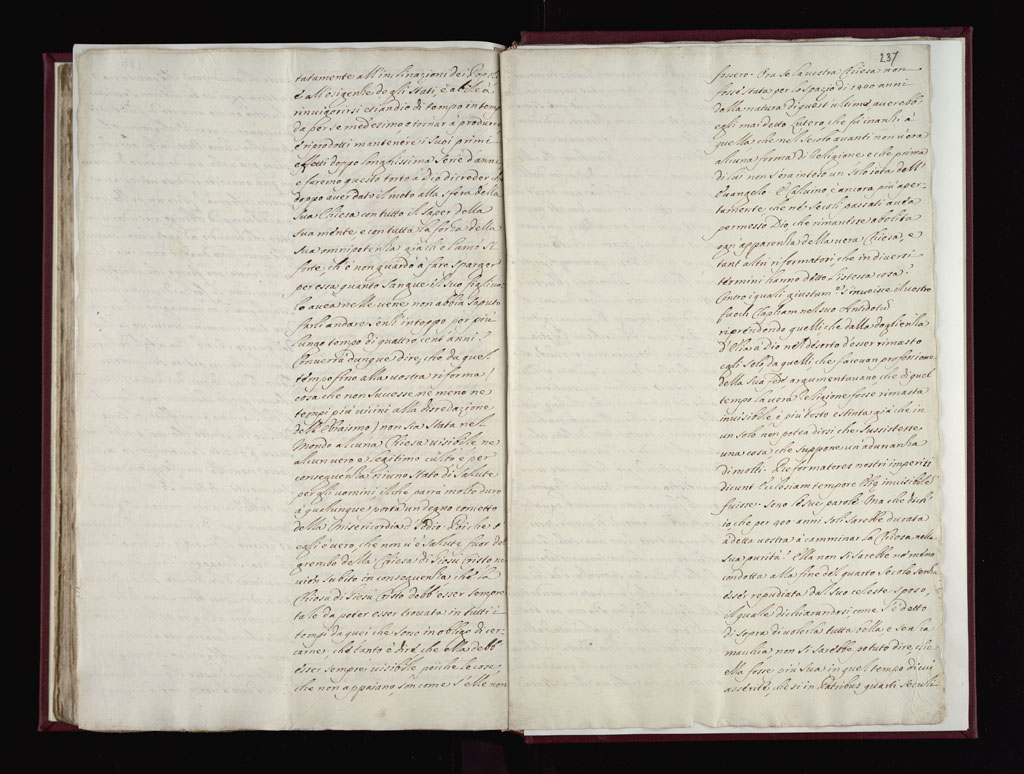 tatamente all'inclinazioni dei Popoli
è all'esigenze degli Stati, è abile à
rinvigorirsi etiandio di tempo in temp
da per se medesimo, e tornar à produrre
è riprodotti mantenere i suoi primi
effetti doppo longhissima serie d'anni
e faremo questo torto à Dio di creder ch
doppo aver dato il moto alla sfera della
sua Chiesa con tutto il saper della
sua mente e con tutta la forza della
sua omnipotenza già ch'el'amò si
forte, ch'è non guardò à fare sparger
per essa quanto sangue il suo figliuo-
lo avea nelle vene non abbia saputo
farli andare senz'intoppo per più
lungo tempo di quattro cent'anni?
Converrà dunque dire, che da quel
tempo fino alla vostra riforma (
cosa che non successe ne meno ne
tempi più vicini alla
dell'Ebraismo) non sia stata nel
Mondo alcuna Chiesa visibile ne
alcun vero e legitimo culto e per
conseguenza niuno stato di salute
per gli uomini il che parrà molto duro
à qualunque porta un degno concetto
della Misericordia d'Iddio. Poiche
egli è vero, che non v'è salute fuor del
grembo della Chiesa di Giesù Cristo ne
vien subito in conseguenza che la
Chiesa di Giesù Cristo debb'esser sempre
tale da poter esser trovata in tutti i
tempi da quei che sono in obligo di cer-
carne; che tanto è dire, che ella debb'
esser sempre visibile poiche le cose,
che non appaiano son come s'elle non
237
fossero. Ora se la vostra Chiesa non
fosse stata per lo spazio di 1400 anni
della natura di quest'ultime, averebb'
egli mai detto Lutero che
quella che nel secolo avanti non v'era
alcuna forma di Religione, e che prima
di lui non s'era inteso un solo iota dell'
Evangelo. E Calvino è ancora più aper-
tamente che né secoli passati avea
permesso Dio, che rimanesse abolita
ogni apparenza della vera Chiesa, e
tant'altri riformatori che in diversi
termini hanno detto l'istessa cosa?
Contro i quali giustam.te s'invoisce il vostro
Clapham nel suo Antidoto
riprendendo quelli che dalla doglienza
d'Elia à Dio nel deserto d'esser rimasto
egli solo, da quelli, che facevan professione
della sua fede argumentavano che di quel
tempo la vera Religione fosse rimasta
invisibile è più testo estinta già che in
un solo non potea dirsi che sussistesse
una cosa che suppone un'adunanza
di molti. Reformatores nostri imperiti
dicunt Ecclesiam tempore Eliae invisibile
fuisse: sono le sue parole. Ma che dich'
io che per 400 anni sol sarebbe durata
à detta vostra à camminar la Chiesa nella
sua purità? Ella non si sarebbe ne meno
condotta alla fine del quarto secolo senza
esser repudiata dal suo celeste sposo,
il quale dichiarandosi come s'è detto
di sopra di volerla tutta bella, e senza
macchia non si sarebbe potuto dire, che
ella fosse più sua in quel tempo di cui
che si in Patribus quarti seculi